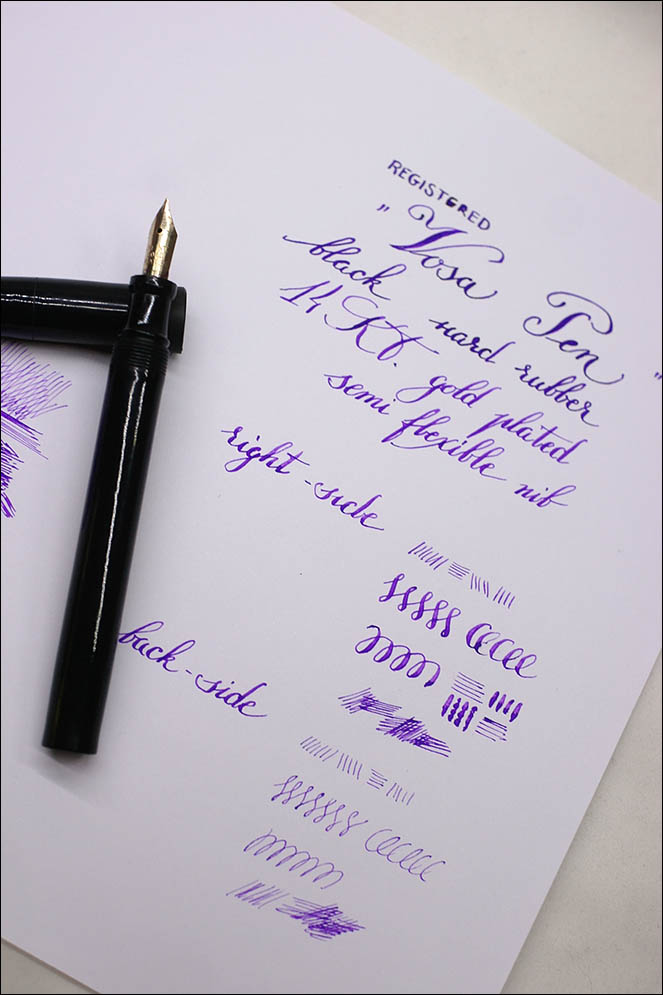 REGISTERED
"Vosa Pen"
black hard rubber
14 KT. gold plated
semi flexible nib
right-side
back-side